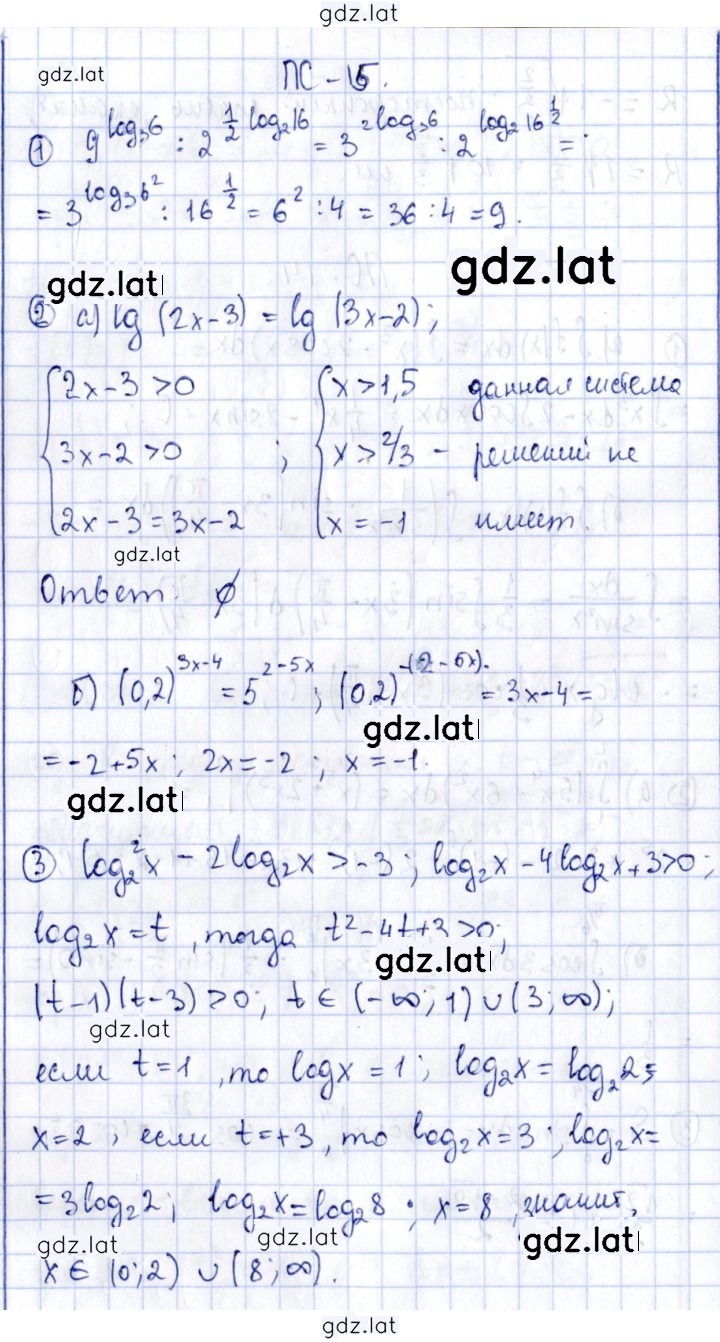 gdz.lat
gdz.lat
ПС-15.
① 9^{log₃6} : 2^{½ log₂16} = 3^{2log₃6} : 2^{log₂16^{½}} =
= 3^{log₃6²} : 16^{½} = 6² : 4 = 36 : 4 = 9.
gdz.lat
gdz.lat
② а) lg (2x-3) = lg (3x-2);
{2x-3>0 {x>1,5 данная система
3x-2>0 ; x>2/3 - решений не
2x-3=3x-2 x=-1 имеет.
gdz.lat
Ответ: ∅
б) (0,2)^{3x-4} = 5^{2-5x}; (0,2)^{-(2-5x)} = 3x-4 =
gdz.lat
= -2+5x; 2x=-2; x=-1.
gdz.lat
③ log₂²x - 2log₂x > -3; log₂x - 4log₂x+3>0;
log₂x = t, тогда t²-4t+3>0;
gdz.lat
(t-1)(t-3)>0; t∈(-∞;1)∪(3;∞);
gdz.lat
если t=1, то logx = 1; log₂x = log₂2;
x=2; если t=+3, то log₂x=3; log₂x=
=3log₂2; log₂x=log₂8; x=8, значит,
gdz.lat
gdz.lat
gdz.lat
x∈(0;2)∪(8;∞).
gdz.lat